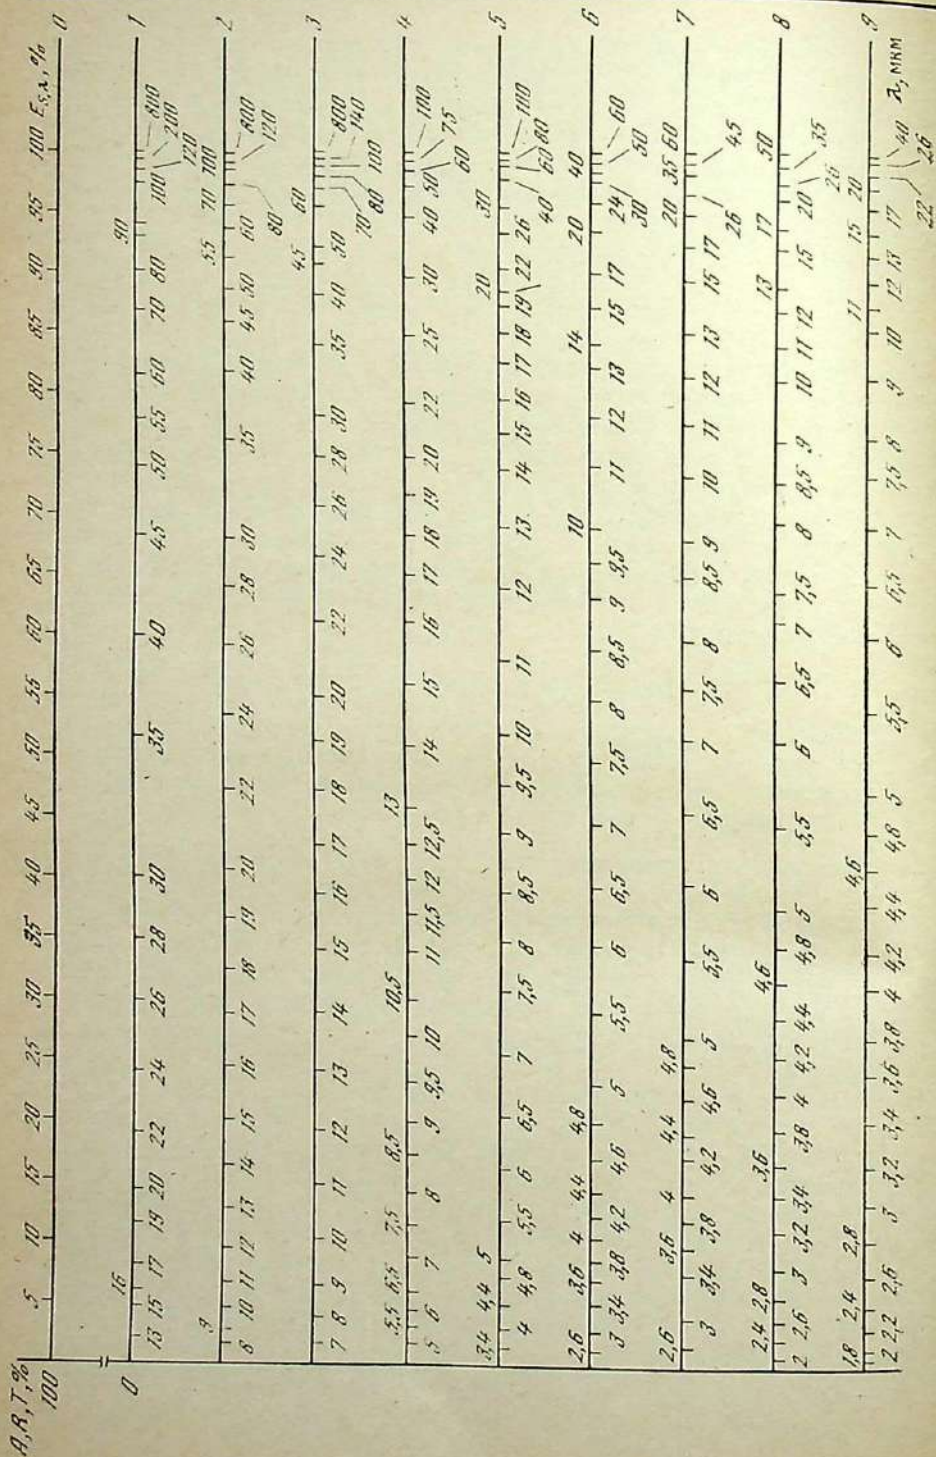 A, R, T, %
100
5 10 15 20 25 30 35 40 45 50 55 60 65 70 75 80 85 90 95 100 E₅,λ, %
0
0
16 90
1
13 15 17 19 20 22 24 26 28 30 35 40 45 50 55 60 70 80 100 120 200 800
9 55 70 100
2
8 10 11 12 13 14 15 16 17 18 19 20 22 24 26 28 30 35 40 45 50 60 80 120 800
45 60
3
7 8 9 10 11 12 13 14 15 16 17 18 19 20 22 24 26 28 30 35 40 50 70 80 100 140 800
5,5 6,5 7,5 8,5 10,5 13
4
5 6 7 8 9 9,5 10 11 11,5 12 12,5 14 15 16 17 18 19 20 22 25 30 40 50 60 75 100
3,4 4,4 5 20 30
5
4 4,8 5,5 6 6,5 7 7,5 8 8,5 9 9,5 10 11 12 13 14 15 16 17 18 19 22 26 40 60 80 100
2,6 3,6 4 4,4 4,8 10 14 20 40
6
3 3,4 3,8 4,2 4,6 5 5,5 6 6,5 7 7,5 8 8,5 9 9,5 11 12 13 15 17 24 30 50 60
2,6 3,6 4 4,4 4,8 20 35 60
7
3 3,4 3,8 4,2 4,6 5 5,5 6 6,5 7 7,5 8 8,5 9 10 11 12 13 15 17 26 45
2,4 2,8 3,6 4,6 13 17 50
8
2 2,6 3 3,2 3,4 3,8 4 4,2 4,4 4,8 5 5,5 6 6,5 7 7,5 8 8,5 9 10 11 12 15 20 26 35
1,8 2,4 2,8 4,6 11 15 20
9
2 2,2 2,6 3 3,2 3,4 3,6 3,8 4 4,2 4,4 4,8 5 5,5 6 6,5 7 7,5 8 9 10 12 13 17 22 26 40
λ, мкм